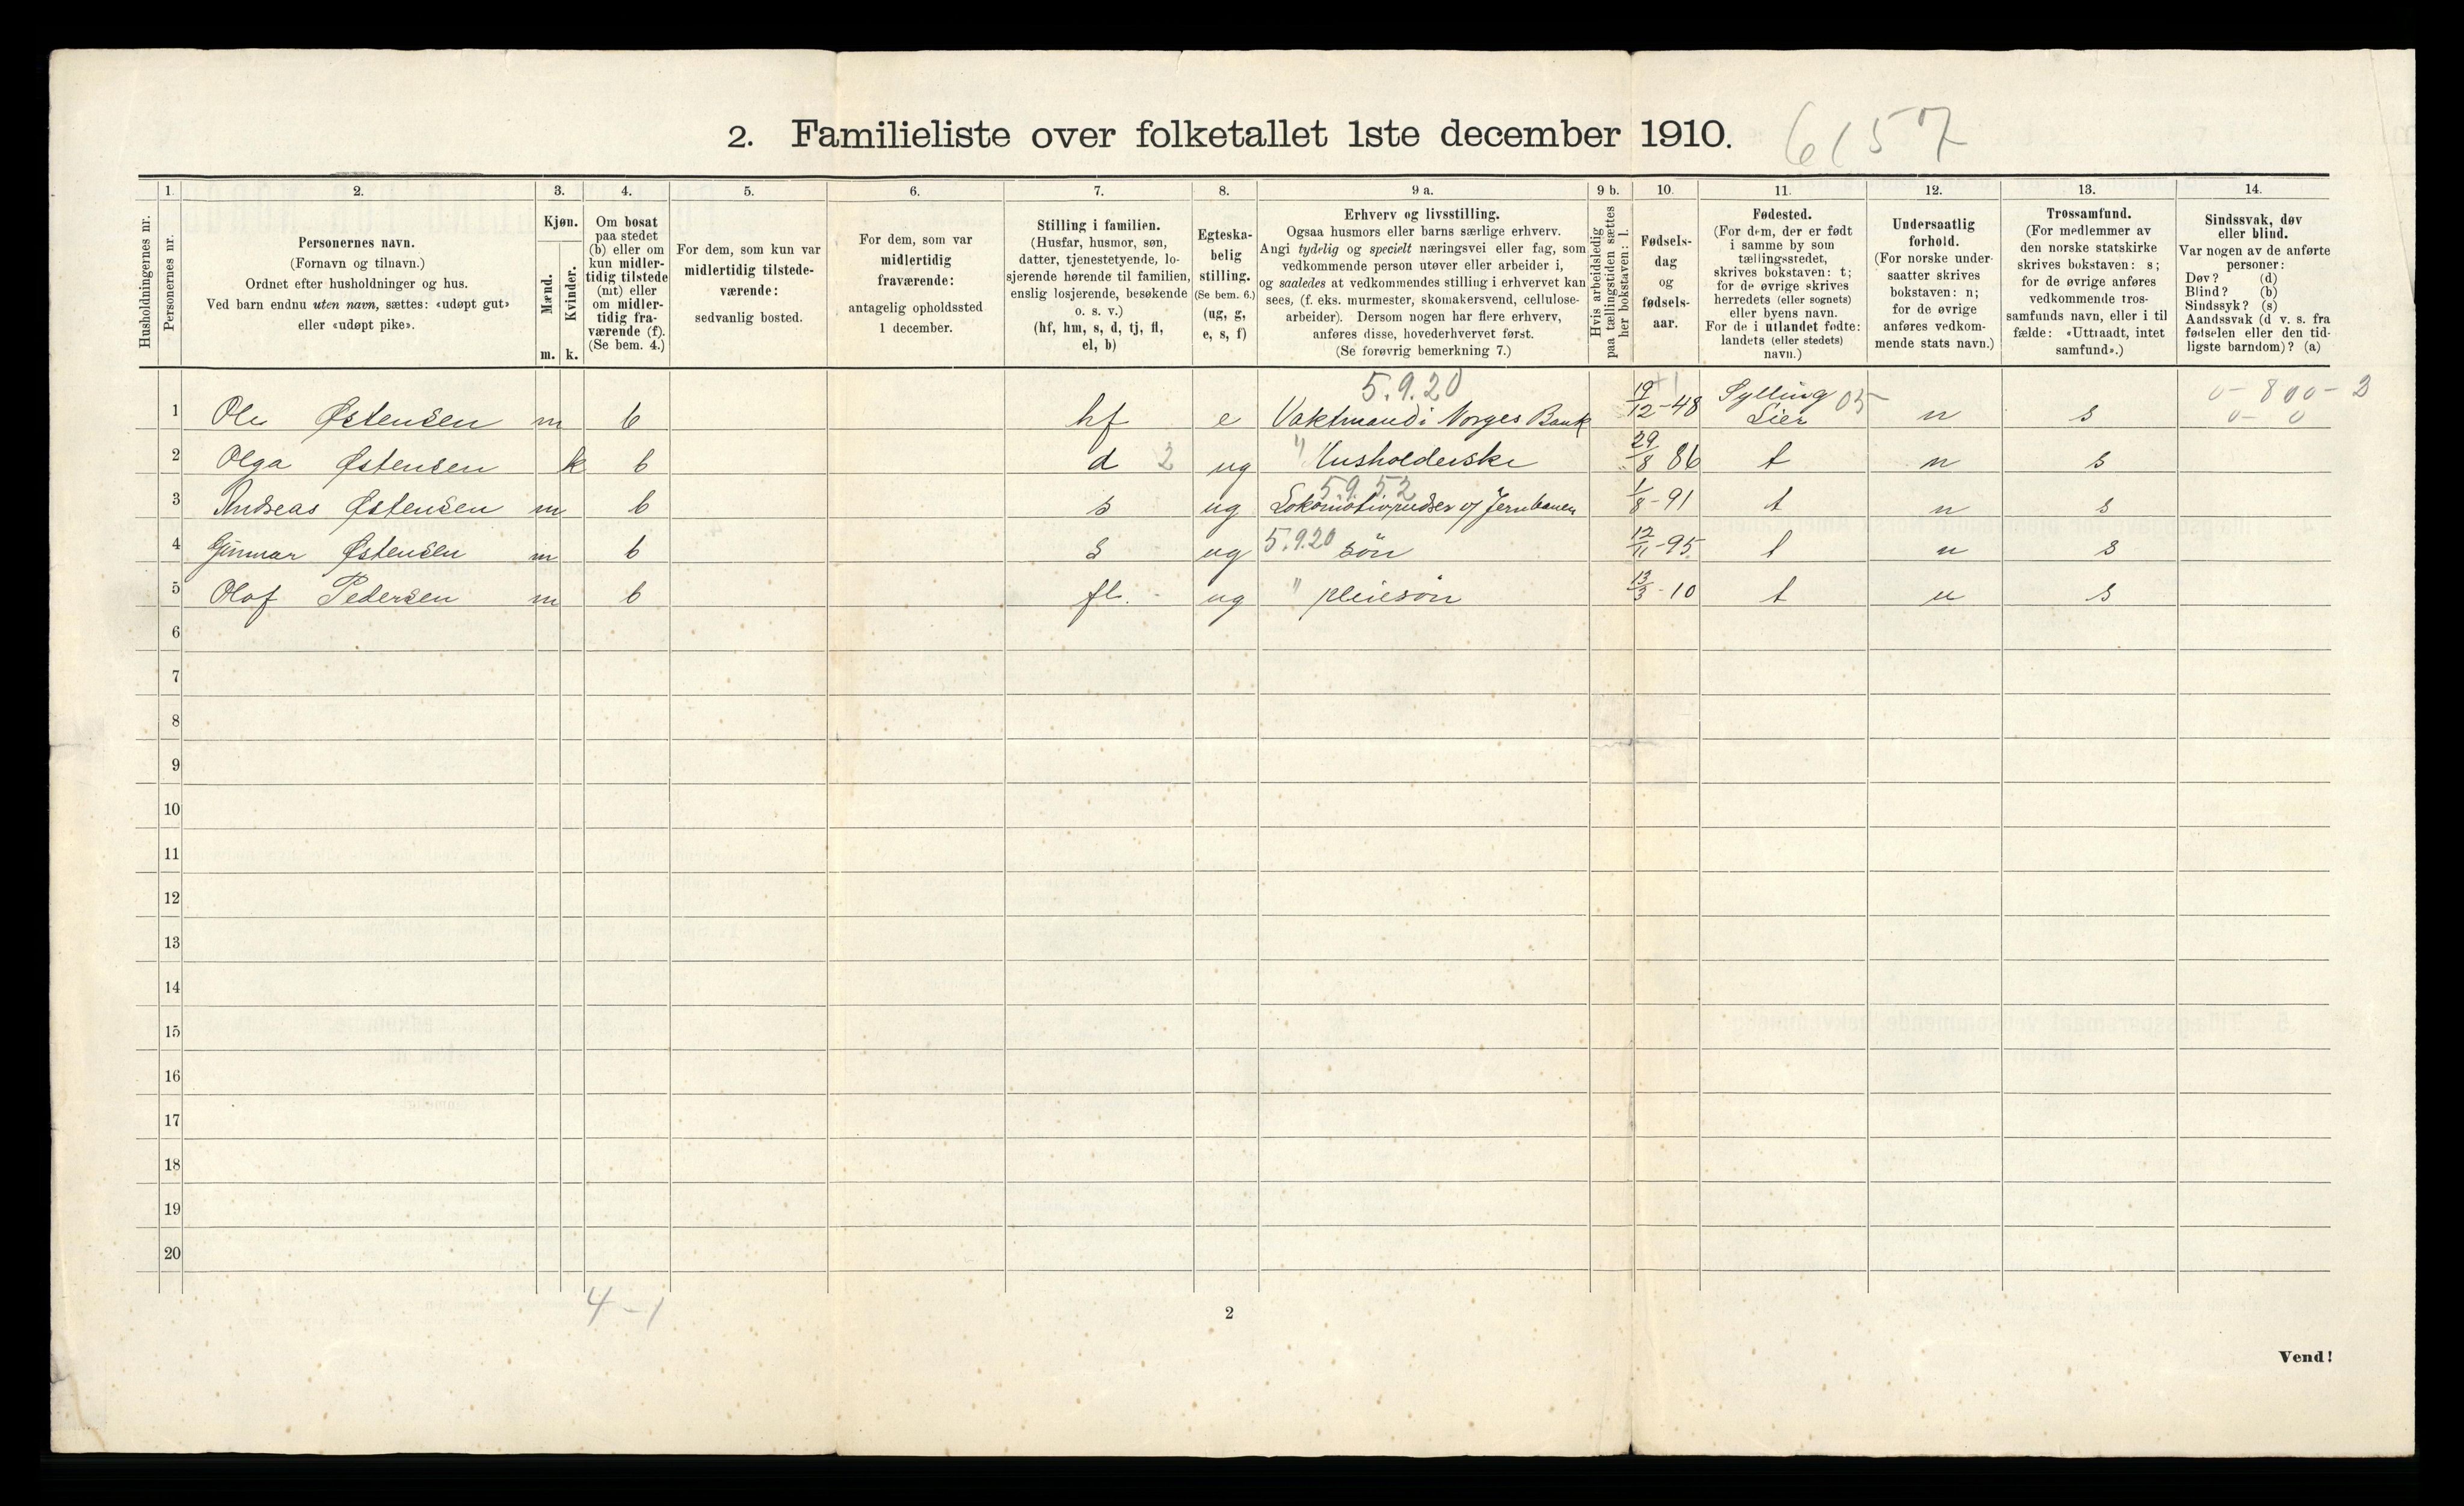 2. Familieliste over folketallet 1ste december 1910. 6157
Husholdningernes nr.
1. Personernes nr.
2. Personernes navn.
(Fornavn og tilnavn.)
Ordnet efter husholdninger og hus.
Ved barn endnu uten navn, sættes: «udøpt gut»
eller «udøpt pike».
3. Kjøn.
Mænd. Kvinder.
m. k.
4. Om bosat
paa stedet
(b) eller om
kun midler-
tidig tilstede
(mt) eller
om midler-
tidig fra-
værende (f).
(Se bem. 4.)
5. For dem, som kun var
midlertidig tilstede-
værende:
sedvanlig bosted.
6. For dem, som var
midlertidig
fraværende:
antagelig opholdssted
1 december.
7. Stilling i familien.
(Husfar, husmor, søn,
datter, tjenestetyende, lo-
sjerende hørende til familien,
enslig losjerende, besøkende
o. s. v.)
(hf, hm, s, d, tj, fl,
el, b)
8. Egteska-
belig
stilling.
(Se bem. 6.)
(ug, g,
e, s, f)
9 a. Erhverv og livsstilling.
Ogsaa husmors eller barns særlige erhverv.
Angi tydelig og specielt næringsvei eller fag, som
vedkommende person utøver eller arbeider i,
og saaledes at vedkommendes stilling i erhvervet kan
sees, (f. eks. murmester, skomakersvend, cellulose-
arbeider). Dersom nogen har flere erhverv,
anføres disse, hovederhvervet først.
(Se forøvrig bemerkning 7.)
9 b. Hvis arbeidsledig
paa tællingstiden sættes
her bokstaven: l.
10. Fødsels-
dag
og
fødsels-
aar.
11. Fødested.
(For dem, der er født
i samme by som
tællingsstedet,
skrives bokstaven: t;
for de øvrige skrives
herredets (eller sognets)
eller byens navn.
For de i utlandet fødte:
landets (eller stedets)
navn.)
12. Undersaatlig
forhold.
(For norske under-
saatter skrives
bokstaven: n;
for de øvrige
anføres vedkom-
mende stats navn.)
13. Trossamfund.
(For medlemmer av
den norske statskirke
skrives bokstaven: s;
for de øvrige anføres
vedkommende tros-
samfunds navn, eller i til
fælde: «Uttraadt, intet
samfund».)
14. Sindssvak, døv
eller blind.
Var nogen av de anførte
personer:
Døv? (d)
Blind? (b)
Sindssyk? (s)
Aandssvak (d v. s. fra
fødselen eller den tid-
ligste barndom)? (a)
5.9.20 Sylling 05 0 - 800 - 2
1 Ole Østensen m b hf e Vaktmand i Norges Bank 19/12-48 Lier n s 0 - 0
2 Olga Østensen k b d 2 ug " Husholderske 29/8 86 t n s
5.9.52
3 Andreas Østensen m b s ug Lokomotivpudser v/ Jernbanen 1/8-91 t n s
4 Gunnar Østensen m b s ug 5.9.20 søn 12/11-95 t n s
5 Olaf Pedersen m b fl. ug " pleiesøn 13/3-10 t n s
6
7
8
9
10
11
12
13
14
15
16
17
18
19
20
4-1
2
Vend!